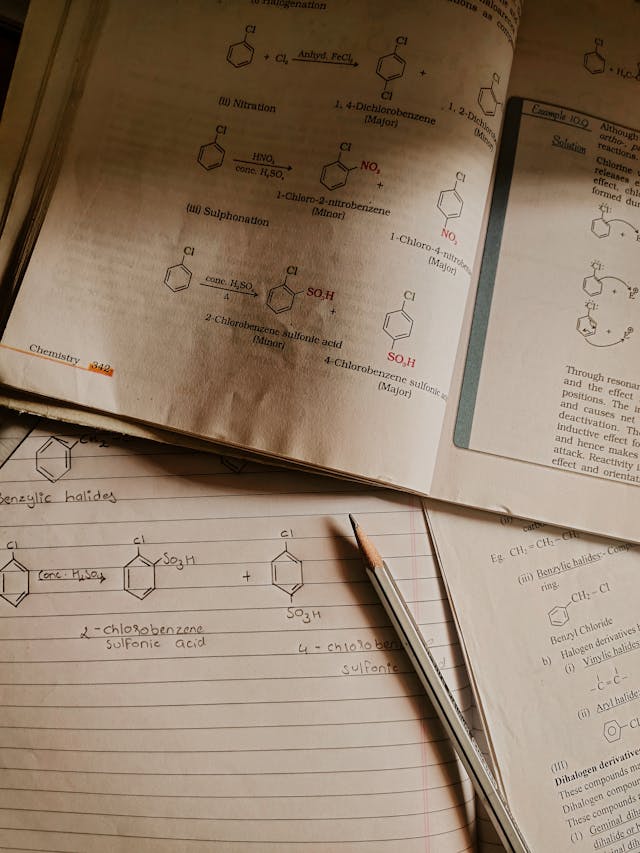 Halogenation
Cl
+ Cl₂ Anhyd. FeCl₃
Cl
Cl
+
Cl
1, 4-Dichlorobenzene
(Major)
1, 2-Dichloro
(Minor
(ii) Nitration
Cl
HNO₃
conc. H₂SO₄
Cl
NO₂
+
1-Chloro-2-nitrobenzene
(Minor)
Cl
NO₂
1-Chloro-4-nitroben
(Major)
(iii) Sulphonation
Cl
conc. H₂SO₄
Δ
Cl
SO₃H
+
2-Chlorobenzene sulfonic acid
(Minor)
Cl
SO₃H
4-Chlorobenzene sulfonic ac
(Major)
Chemistry 342
Cl
+ H₃C
Example 10.9
Although
ortho-, p
reactions.
Solution
Chlorine
releases e
effect, chl
formed dur
:Cl:
+ E
:Cl:
+
:Cl:
+
Through resonan
and the effect
positions. The i
and causes net
deactivation. Th
inductive effect fo
and hence makes
attack. Reactivity
effect and orientat
Benzylic halides
Cl
Conc. H₂SO₄
Cl
SO₃H
+
Cl
SO₃H
2-chlorobenzene
sulfonic acid
4-chloroben
sulfonic
Eg. CH₂=CH₂-CH₂
(iii) Benzylic halides:- Comp
ring.
CH₂-Cl
Benzyl Chloride
b) Halogen derivatives b
(i) Vinylic halides
-C=C-
(ii) Aryl halide
Cl
(III)
Dihalogen derivatives
These compounds ma
Dihalogen compoun
These compounds a
(1) Geminal dih
dihalide or